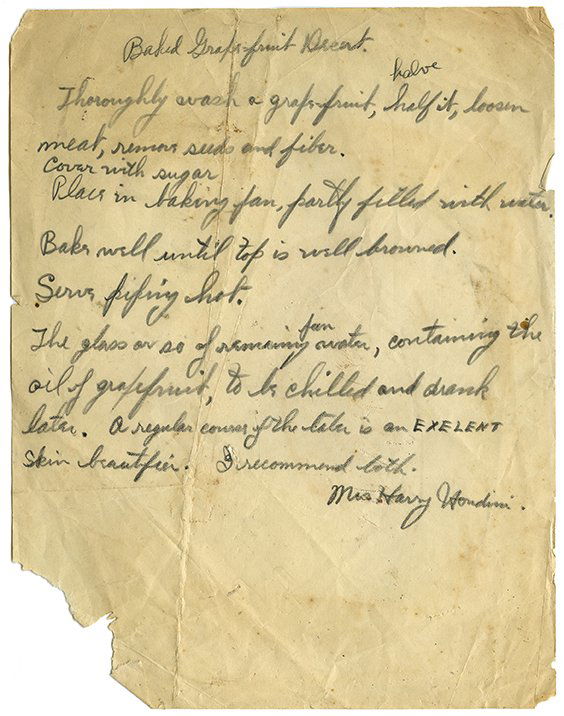 Baked Grape-fruit Decert.
halve
Thoroughly wash a grape-fruit, half it, loosen
meat, remove seeds and fiber.
Cover with sugar
Place in baking pan, partly filled with water.
Bake well until top is well browned.
Serve piping hot.
pan
The glass or so of remaining water, containing the
oil of grapefruit, to be chilled and drank
later. A regular course of the later is an EXELENT
skin beautifier. I recommend both.
Mrs Harry Houdini.